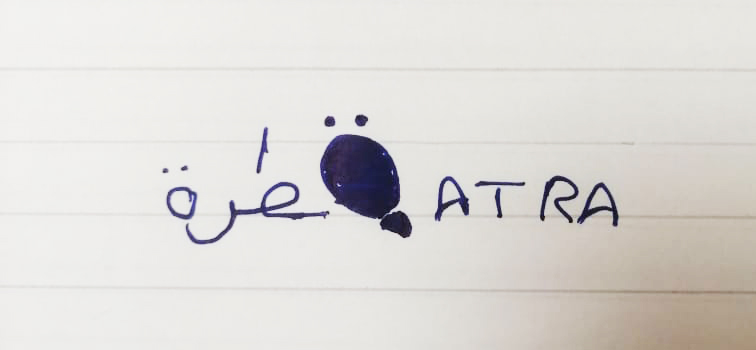 قطرة QATRA